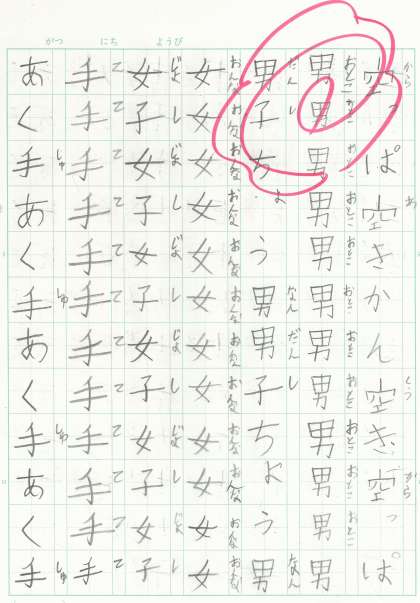 がつ にち ようび
空っぱ空きかん空き空っぱ
から あ から
男男男男男男男男男男男男
おとこ おとこ おとこ おとこ おとこ おとこ おとこ おとこ おとこ おとこ おとこ おとこ
男子ちょう男男子ちょう男
だん し なん だん し なん
女女女女女女女女女女女女
おんな おんな おんな おんな おんな おんな おんな おんな おんな おんな おんな おんな
女子女子女子女子女子女子
じょ し じょ し じょ し じょ し じょ し じょ し
手手手手手手手手手手手手
て て て て て て て て て て て て
あく手あく手あく手あく手
しゅ しゅ しゅ しゅ